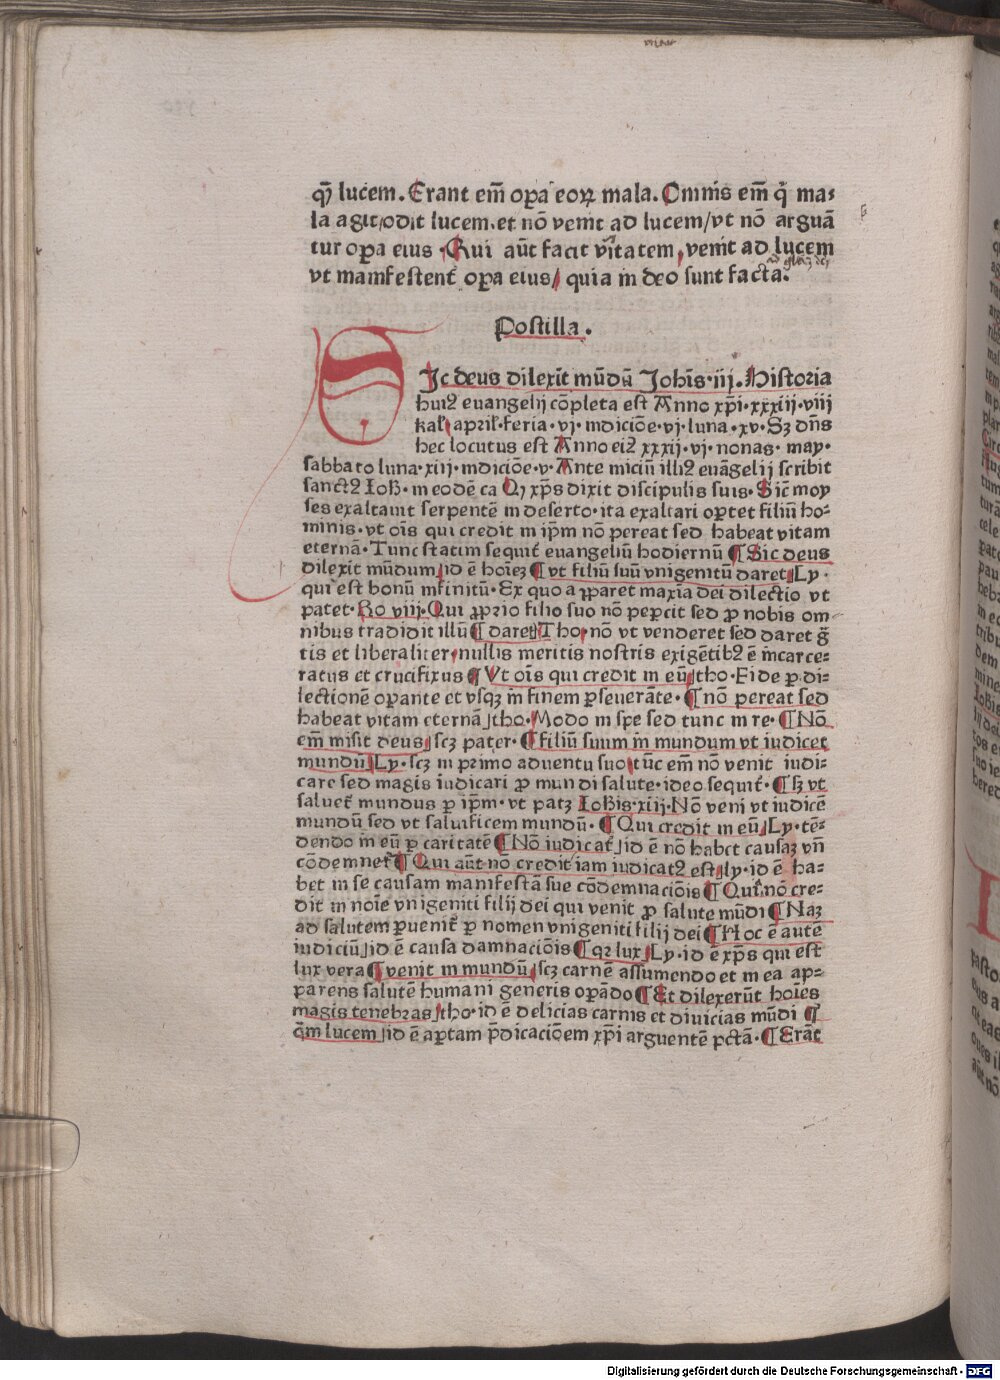 qȝ lucem. Erant em̄ oꝑa eoꝝ mala. Omnis em̄ q̇ ma⸗
la agit/odit lucem.et nō venit ad lucem/vt nō arguā
tur oꝑa eius ·Qui aūt facit v̄itatem,venit ad lucem
vt manifestent᷑ oꝑa eius/ quia in deo sunt facta.
Postilla.
SJc deus dilexit mūdū Joh̄is·iij. Historia
hui9 euangelij cōpleta est Anno xp̄i·xxxiij·viij
kal̄ april̄·feria·vj·indiciōe·vj·luna·xv·Sȝ dn̄s
hec locutus est Anno ei9 xxxij·vj·nonas·may·
sabbato luna·xiij·indiciōe·v·Ante iniciū illi9 euāgelij scribit
sanct9 Ioh̄·in eodē ca Qȝ xp̄s dixit discipulis suis·Sic̄ moy
ses exaltauit serpentē in deserto·ita exaltari oꝑtet filiū ho⸗
minis·vt oīs qui credit in ip̄m nō pereat sed habeat vitam
eternā·Tunc statim sequit᷑ euangeliū hodiernū ¶Sic deus
dilexit mūdum/id ē hoīeȝ ¶vt filiū suū vnigenitū daret/Ly·
qui est bonū infinitū·Ex quo aꝑparet maxīa dei dilectio vt
patet·Ro viij·Qui ꝓprio filio suo nō peꝑcit sed ꝓ nobis om⸗
nibus tradidit illū ¶daret/Tho·nō vt venderet sed daret g̈
tis et liberaliter,nullis meritis nostris exigētib9 ē incarce⸗
ratus et crucifixus ¶Vt oīs qui credit in eū/tho·Fide ꝑ di⸗
lectionē oꝑante et vsqȝ in finem ꝑseuerāte·¶nō pereat sed
habeat vitam eternā/tho·Modo in spe sed tunc in re·¶Nō
em̄ misit deus/scȝ pater·¶filiū suum in mundum vt iudicet
mundū/Ly·scȝ in primo aduentu suo,tūc em̄ nō venit iudi⸗
care sed magis iudicari ꝓ mundi salute·ideo sequit᷑·¶sȝ vt
saluet᷑ mundus ꝑ ip̄m·vt patȝ Ioh̄is·xiij·Nō veni vt iudicē
mundū sed vt saluificem mundū·¶Qui credit in eū/Ly·tē⸗
dendo in eū ꝑ caritatē ¶Nō iudicat᷑/id ē nō habet causaȝ vn̄
cōdemnet᷑ ¶Qui aūt nō credit iam iudicat9 est/ly·id ē ha⸗
bet in se causam manifestā sue cōdemnaciōis ¶Quia nō cre⸗
dit in noīe vnigeniti filij dei qui venit ꝓ salute mūdi ¶Naȝ
ad salutem ꝑuenit᷑ ꝑ nomen vnigeniti filij dei ¶Hoc ē autē
iudiciū/id ē causa damnaciōis ¶qꝛ lux/Ly·id ē xp̄s qui est
lux vera ¶venit in mundū/scȝ carnē assumendo et in ea ap⸗
parens salutē humani generis oꝑādo ¶Et dilexerūt hoīes
magis tenebras/tho·id ē delicias carnis et diuicias mūdi ¶
q̄m lucem/id ē aꝑtam p̄dicaciōem xp̄i arguentē pctā·¶Erāt
Digitalisierung gefördert durch die Deutsche Forschungsgemeinschaft - DFG